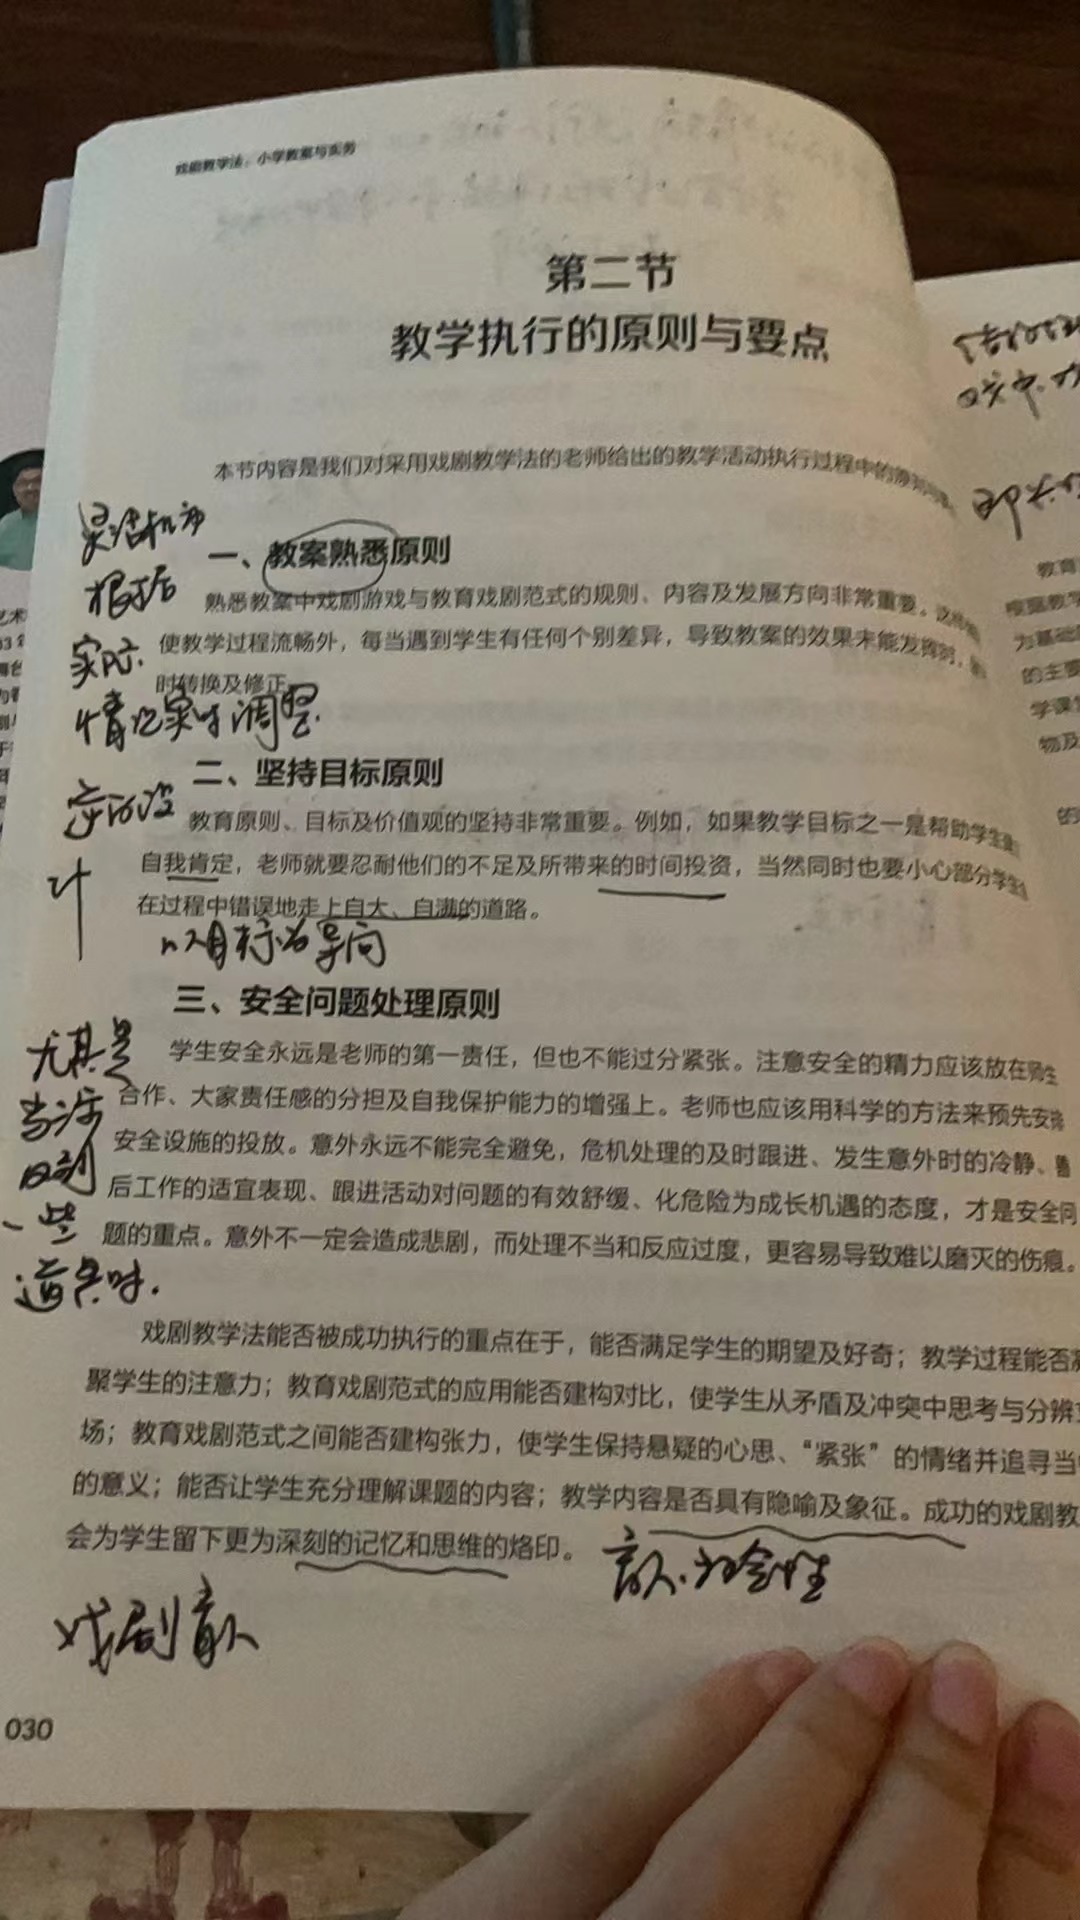 戏剧教学法：小学教案与实务
第二节
教学执行的原则与要点
本节内容是我们对采用戏剧教学法的老师给出的教学活动执行过程中的
灵活机动
一、教案熟悉原则
根据
熟悉教案中戏剧游戏与教育戏剧范式的规则、内容及发展方向非常重要。
实际
使教学过程流畅外，每当遇到学生有任何个别差异，导致教案的效果未能发挥时，
时转换及修正。
情况实时调整
二、坚持目标原则
逆向设
教育原则、目标及价值观的坚持非常重要。例如，如果教学目标之一是帮助学生
计
自我肯定，老师就要忍耐他们的不足及所带来的时间投资，当然同时也要小心部分学生
在过程中错误地走上自大、自满的道路。
以目标为导向
三、安全问题处理原则
尤其是
学生安全永远是老师的第一责任，但也不能过分紧张。注意安全的精力应该放在师生
当涉
合作、大家责任感的分担及自我保护能力的增强上。老师也应该用科学的方法来预先安排
及到
安全设施的投放。意外永远不能完全避免，危机处理的及时跟进、发生意外时的冷静、
后工作的适宜表现、跟进活动对问题的有效舒缓、化危险为成长机遇的态度，才是安全问
一些
题的重点。意外不一定会造成悲剧，而处理不当和反应过度，更容易导致难以磨灭的伤痕。
道具时.
戏剧教学法能否被成功执行的重点在于，能否满足学生的期望及好奇；教学过程能否
聚学生的注意力；教育戏剧范式的应用能否建构对比，使学生从矛盾及冲突中思考与分辨
场；教育戏剧范式之间能否建构张力，使学生保持悬疑的心思、“紧张”的情绪并追寻当
的意义；能否让学生充分理解课题的内容；教学内容是否具有隐喻及象征。成功的戏剧教
会为学生留下更为深刻的记忆和思维的烙印。
育人.社会性
戏剧育人
030
教育
根据教学
为基础
的主要
学课堂
物及
的